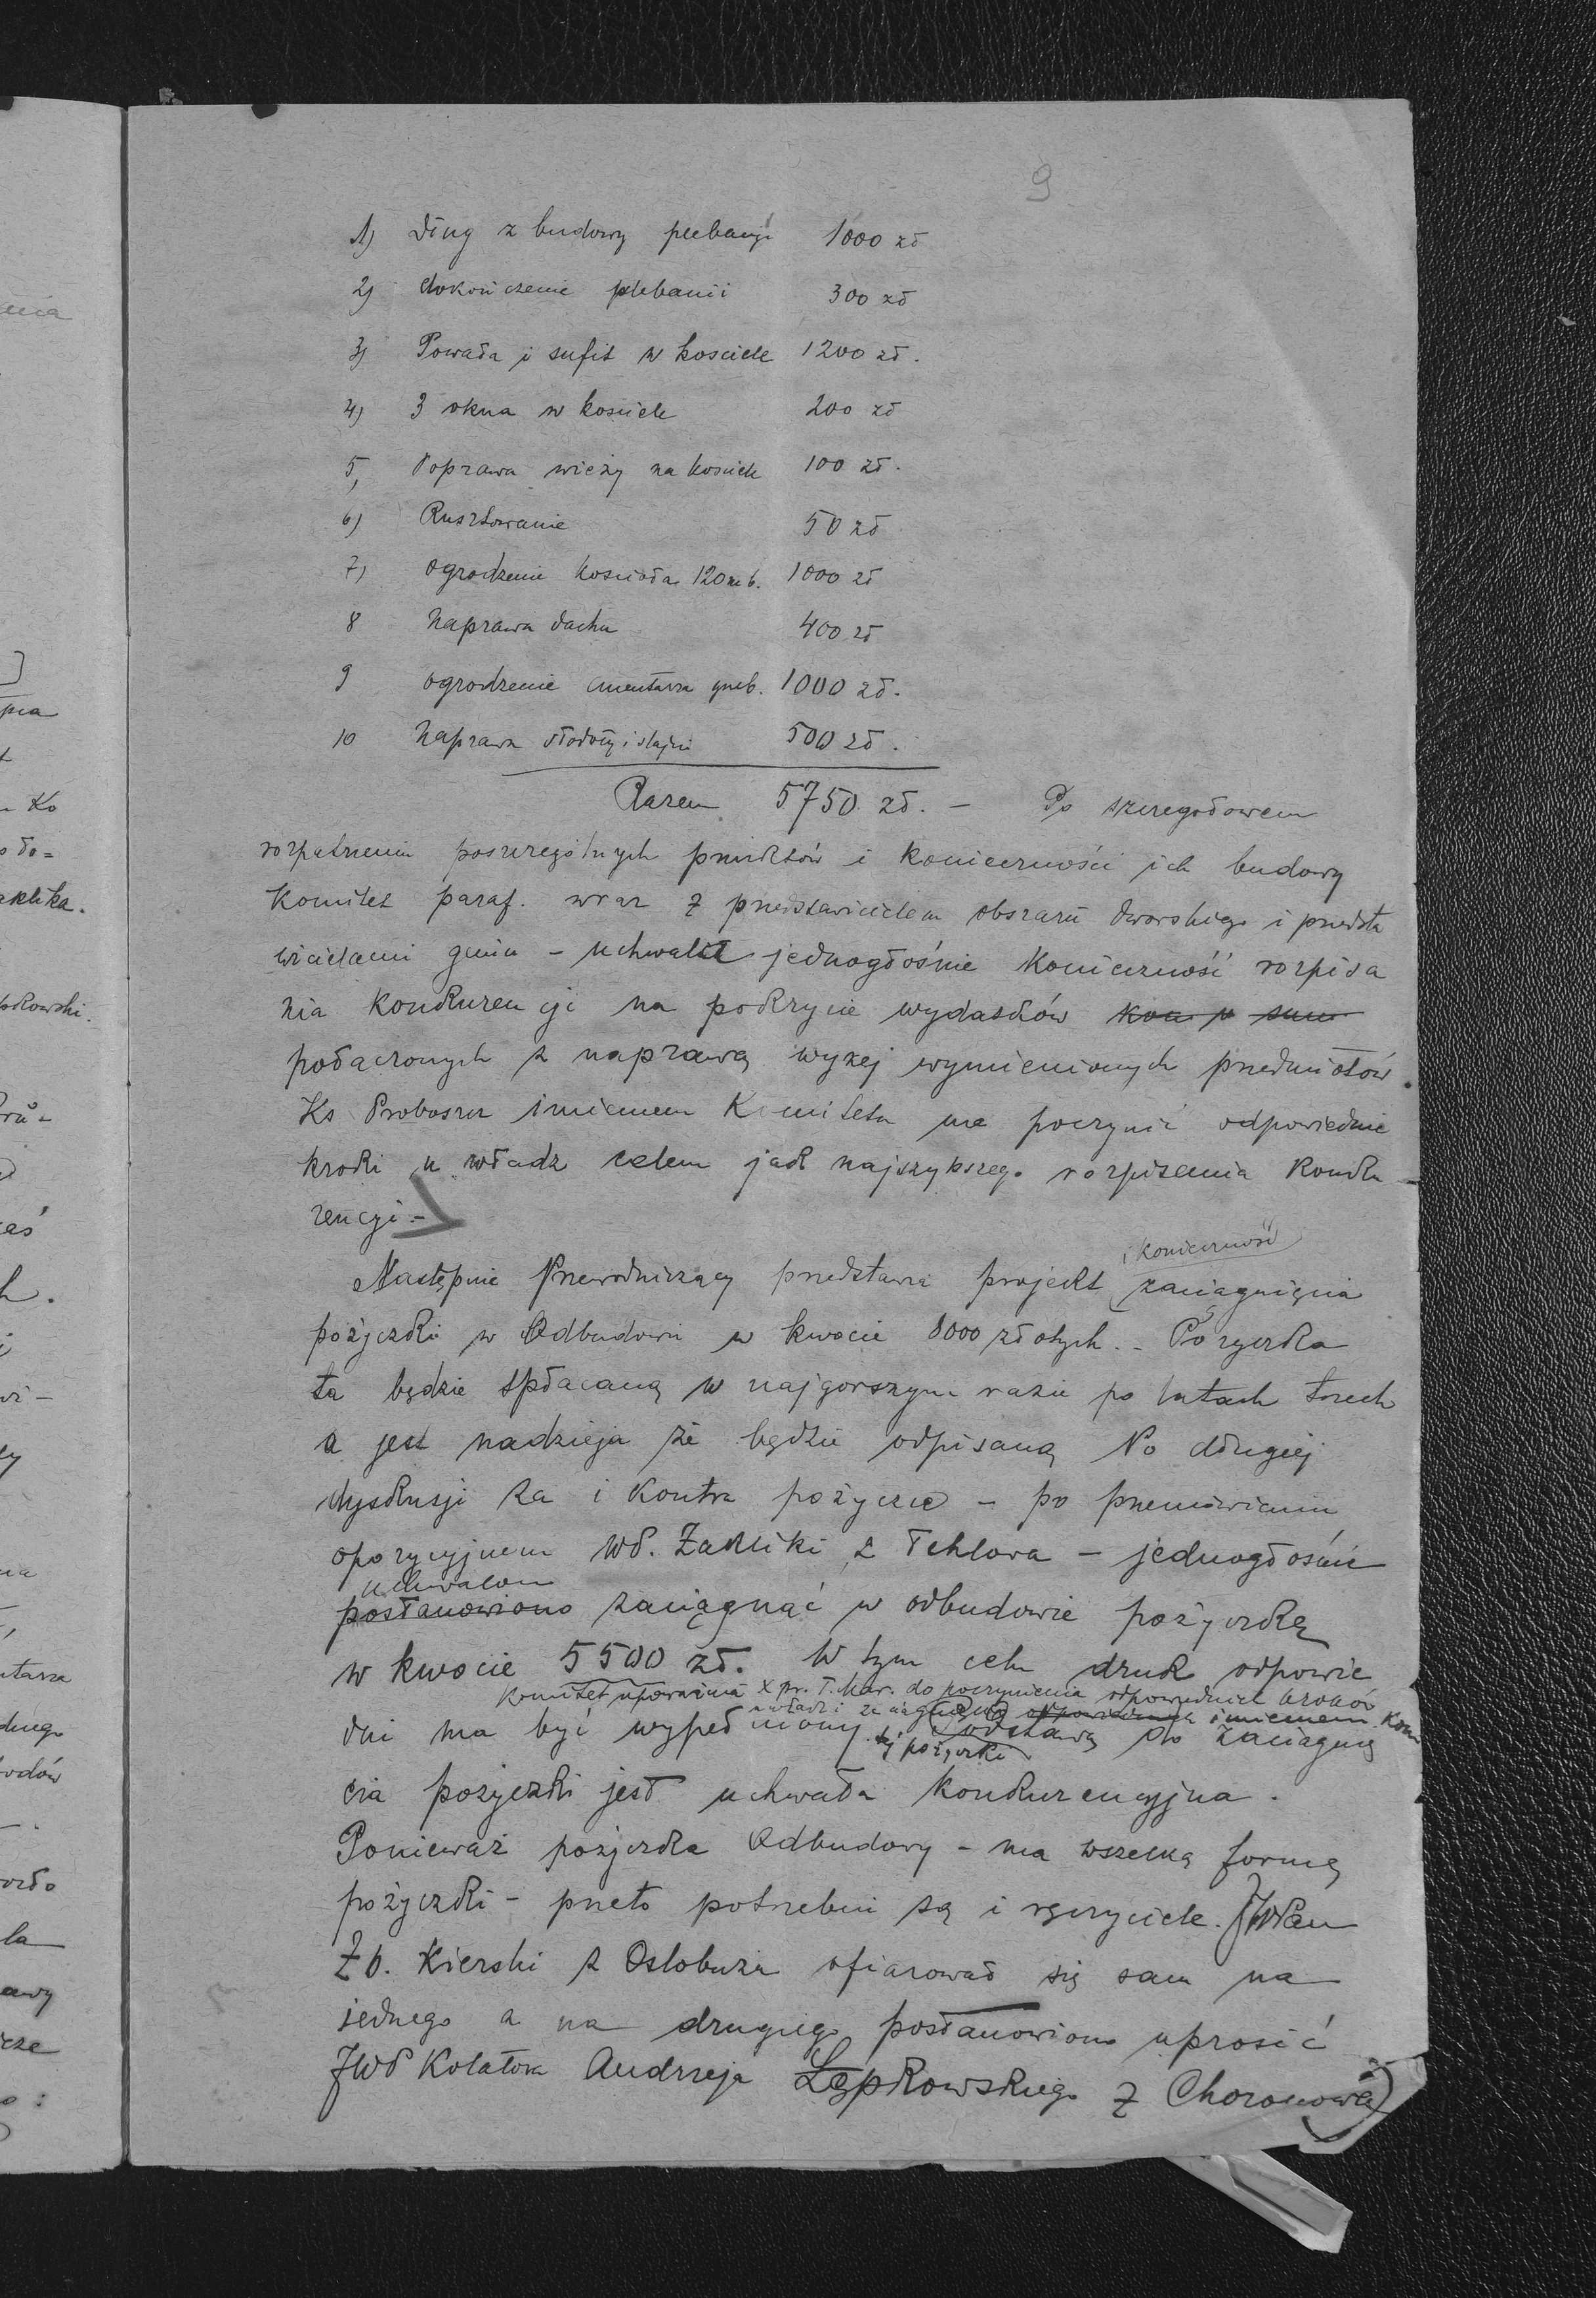 9
1) Dług z budowy plebanji 1000 zł
2) dokończenie plebanii 300 zł
3) Powała i sufit w kosciele 1200 zł.
4) 3 okna w kosciele 200 zł
5, Poprawa wieży na kosciele 100 zł.
6) Rusztowanie 50 zł
7) ogrodzenie koscioła 120 mb. 1000 zł
8 Naprawa dachu 400 zł
9 ogrodzenie cmentarza grzeb. 1000 zł.
10 Naprawa stodoły i stajni 500 zł.
Razem 5750 zł. — Po szczegołowem
rozpatrzeniu poszczególnych punktów i konieczności ich budowy
Komitet paraf. wraz z przedstawicielem obszaru dworskiego i przedsta
wicielami gmin – uchwalił jednogłośnie konieczność rozpisa
nia konkurencji na pokrycie wydatków
połączonych z naprawą wyżej wymienionych przedmiotów.
Ks Proboszcz imieniem Komitetu ma poczynić odpowiednie
kroki u władz celem jak najszybszego rozpisania konku-
rencji.-
i konieczność
Następnie Przewodniczący przedstawia projekt zaciągnięcia
pożyczki w Odbudowie w kwocie 8000 złotych. - Pożyczka
ta będzie spłacaną w najgorszym razie po latach trzech
a jest nadzieja że będzie odpisaną Po długiej
dyskusji za i kontra pożyczce – po przemówieniu
opozycyjnem Wł. Zakliki z Tehlova – jednogłośnie
uchwalono
postanowiono zaciągnąć w odbudowie pożyczkę
w kwocie 5500 zł. W tym celu druk odpowie
Komitet upoważnia X pr. T. Mar. do poczynienia odpowiednich kroków
u władz i zaciągnięcia odpowiedniego imieniem Kom
dni ma być wypełniony. Podstawą do zaciągnię
tej pożyczki
cia pożyczki jest uchwała konkurencyjna.
Ponieważ pożyczka Odbudowy – ma wszelką formę
pożyczki – przeto potrzebni są i ręczyciele. JWPan
Zb. Kierski z Ostobuża ofiarował się sam na
jednego a na drugiego postanowiono uprosić
JWP Kolatora Andrzeja Łępkowskiego z Choronowa)